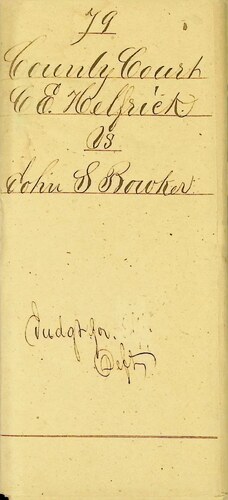 79
County Court
C E. Helfrick
Vs
John S Bowker
Judgt for
Deft